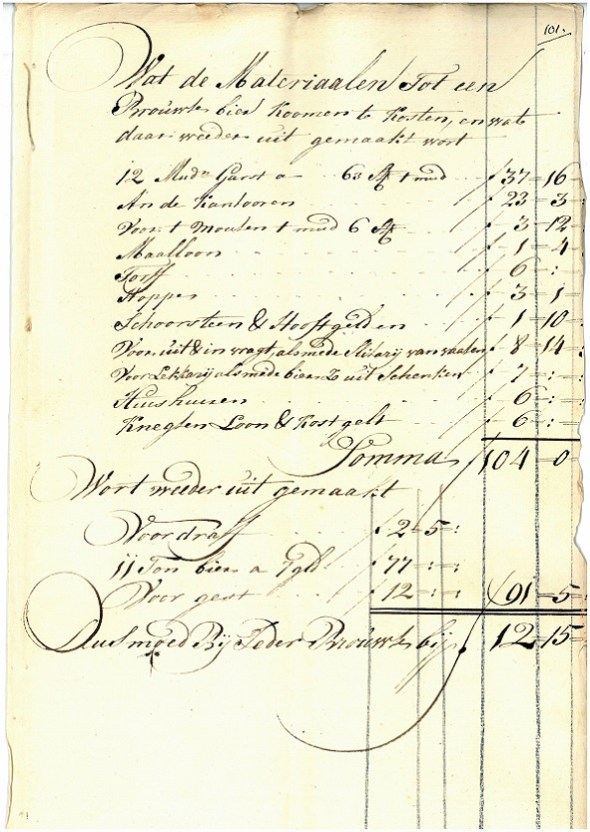 101.
Wat de Materiaalen Tot een
Brouwt bier koomen te kosten, en wat
daar weeder uit gemaakt wort
12 Mud Garst a 63 St t mud f 37 = 16
An de Kantooren f 23 = 3
Voor t moulen t mud 6 St f 3 = 12
Maalloon f 1 = 4
Torff f 6 = :
Hoppe f 3 = 1
Schoorsteen & Hooftgelden f 1 = 10
Voor uit & in vragt, alsmede Slitazij van vaaten f 8 = 14
Voor Lekkazij alsmede bier te uit Schenken f 7 = :
Huishuiren f 6 = :
Knegten Loon & Kost gelt f 6 = :
Somma f 104 = 0
Wort weeder uit gemaakt
Voor draff f 2 = 5 :
11 Ton bier a 7 gld f 77 : = :
Voor gest f 12 : = : f 91 = 5
Dus moed Bij Ieder Brouwt bij f 12 = 15